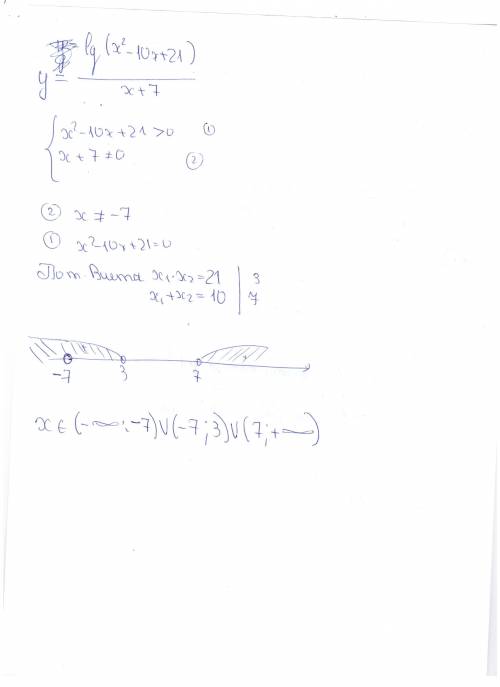 y = lg(x²-10x+21)
x+7
x²-10x+21>0 ①
x+7≠0 ②
② x≠-7
① x²-10x+21=0
По т. Виета x₁·x₂=21 | 3
x₁+x₂=10 | 7
+ +
-7 3 7
x∈(-∞;-7)∪(-7;3)∪(7;+∞)